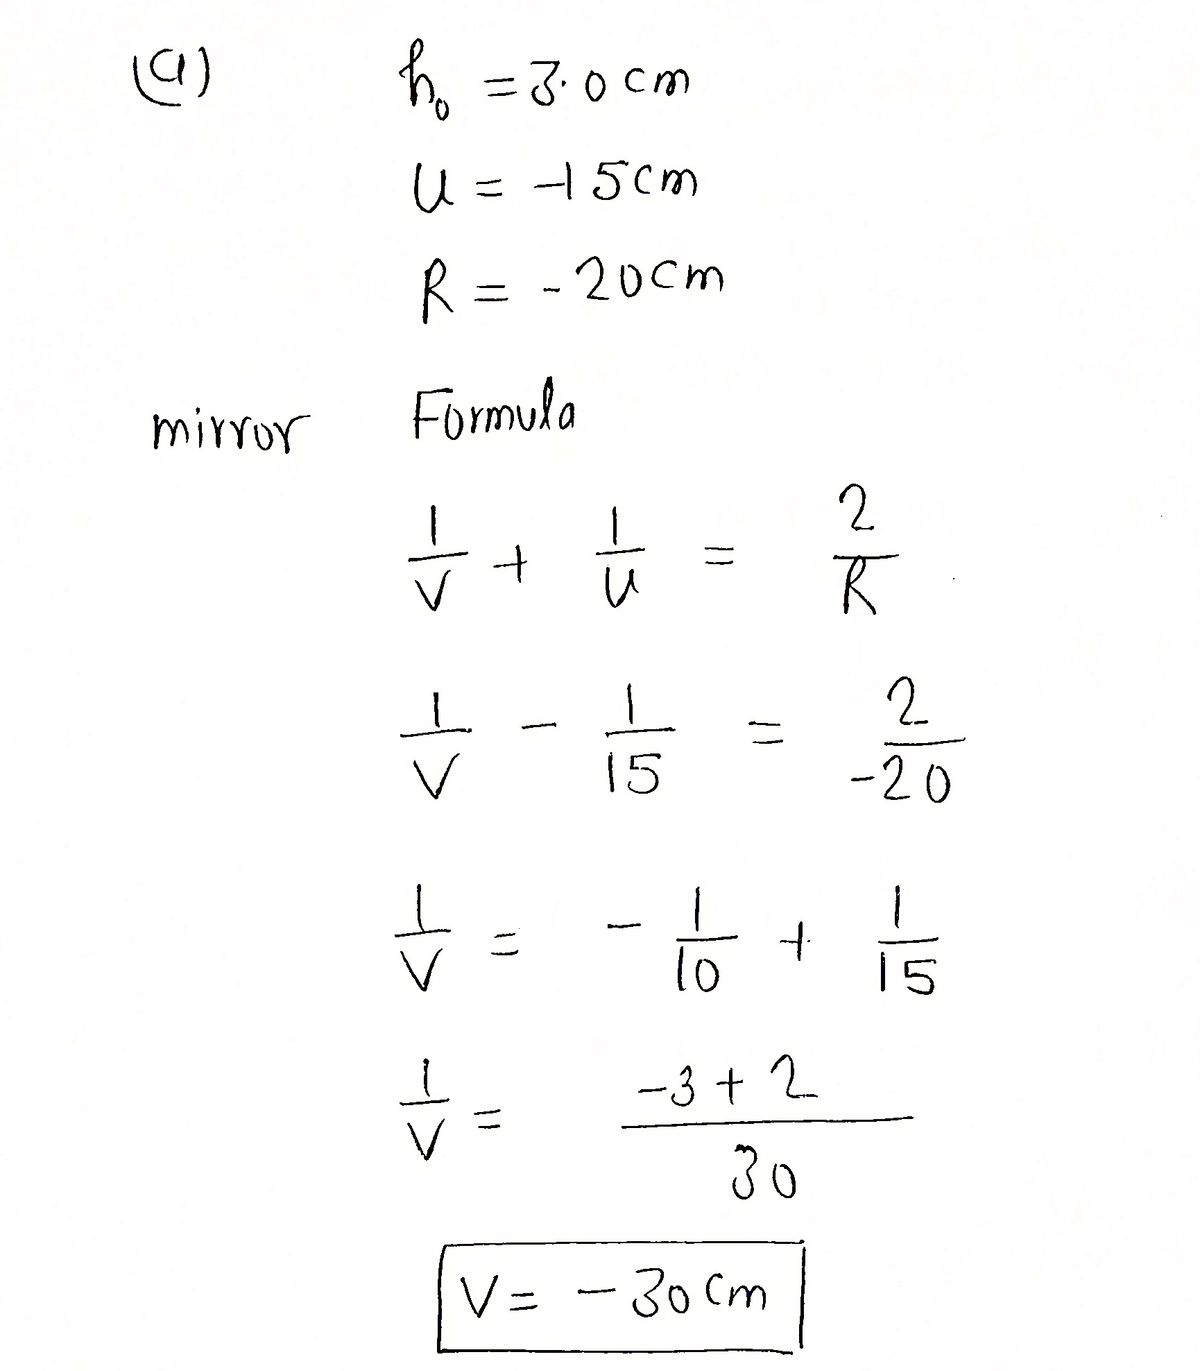 (a) h₀ = 3.0 cm
u = -15 cm
R = -20 cm
mirror Formula
1/v + 1/u = 2/R
1/v - 1/15 = 2/-20
1/v = - 1/10 + 1/15
1/v = -3+2/30
v = -30 cm